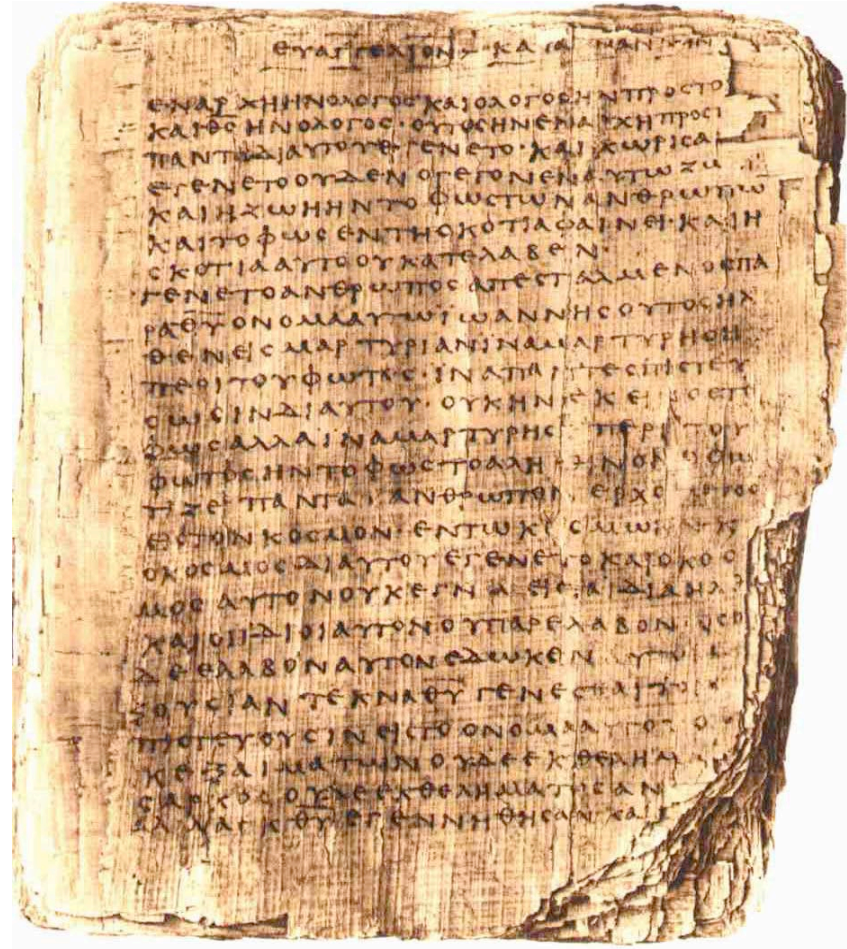 ΕΥΑΓΓΕΛΙΟΝ ΚΑΤΑ
ΕΝΑΡΧΗΗΝΟΛΟΓΟϹΚΑΙΟΛΟΓΟϹΗΝΠΡΟϹΤΟ
ΚΑΙΘ̅Ϲ̅ΗΝΟΛΟΓΟϹ·ΟΥΤΟϹΗΝΕΝΑΡΧΗΠΡΟϹ
ΠΑΝΤΑΔΙΑΥΤΟΥΕΓΕΝΕΤΟ·ΚΑΙΧΩΡΙϹΑ
ΕΓΕΝΕΤΟΟΥΔΕΝΟΓΕΓΟΝΕΝΑΥΤΩΖΩ
ΚΑΙΗΖΩΗΗΝΤΟΦΩϹΤΩΝΑΝΘΡΩΠΩ
ΚΑΙΤΟΦΩϹΕΝΤΗϹΚΟΤΙΑΦΑΙΝΕΙ·ΚΑΙΗ
ϹΚΟΤΙΑΑΥΤΟΟΥΚΑΤΕΛΑΒΕΝ·
ΓΕΝΕΤΟΑΝΘΡΩΠΟϹΑΠΕϹΤΑΛΜΕΝΟϹΠΑ
ΡΑΘ̅Υ̅ΟΝΟΜΑΑΥΤΩΙΩΑΝΝΗϹΟΥΤΟϹΗΛ
ΘΕΝΕΙϹΜΑΡΤΥΡΙΑΝΙΝΑΜΑΡΤΥΡΗϹΗ
ΠΕΡΙΤΟΥΦΩΤΟϹ·ΙΝΑΠΑΝΤΕϹΠΙϹΤΕΥ
ϹΩϹΙΝΔΙΑΥΤΟΥ·ΟΥΚΗΝΕΚΕΙΝΟϹΤΟ
ΦΩϹΑΛΛΑΙΝΑΜΑΡΤΥΡΗϹΗΠΕΡΙΤΟΥ
ΦΩΤΟϹΗΝΤΟΦΩϹΤΟΑΛΗΘΙΝΟΝΟΦΩ
ΤΙΖΕΙΠΑΝΤΑΑΝΘΡΩΠΟΝΕΡΧΟΜΕΝΟ
ΕΙϹΤΟΝΚΟϹΜΟΝ·ΕΝΤΩΚΟϹΜΩΗΝΚ
ΟΚΟϹΜΟϹΔΙΑΥΤΟΥΕΓΕΝΕΤΟΚΑΙΟΚΟϹ
ΜΟϹΑΥΤΟΝΟΥΚΕΓΝΩΕΙϹΤΑΙΔΙΑΗΛ
ΚΑΙΟΙΙΔΙΟΙΑΥΤΟΝΟΥΠΑΡΕΛΑΒΟΝ·ΟϹΟ
ΔΕΕΛΑΒΟΝΑΥΤΟΝΕΔΩΚΕΝ
ΞΟΥϹΙΑΝΤΕΚΝΑΘ̅Υ̅ΓΕΝΕϹΘΑΙΤΟΙ
ΠΙϹΤΕΥΟΥϹΙΝΕΙϹΤΟΟΝΟΜΑΑΥΤΟΥΟ
ΚΕΞΑΙΜΑΤΩΝΟΥΔΕΕΚΘΕΛΗΜ
ϹΑΡΚΟϹΟΥΔΕΕΚΘΕΛΗΜΑΤΟϹΑΝ
ΑΛΛΑΕΚΘ̅Υ̅ΕΓΕΝΝΗΘΗϹΑΝΚΑΙ